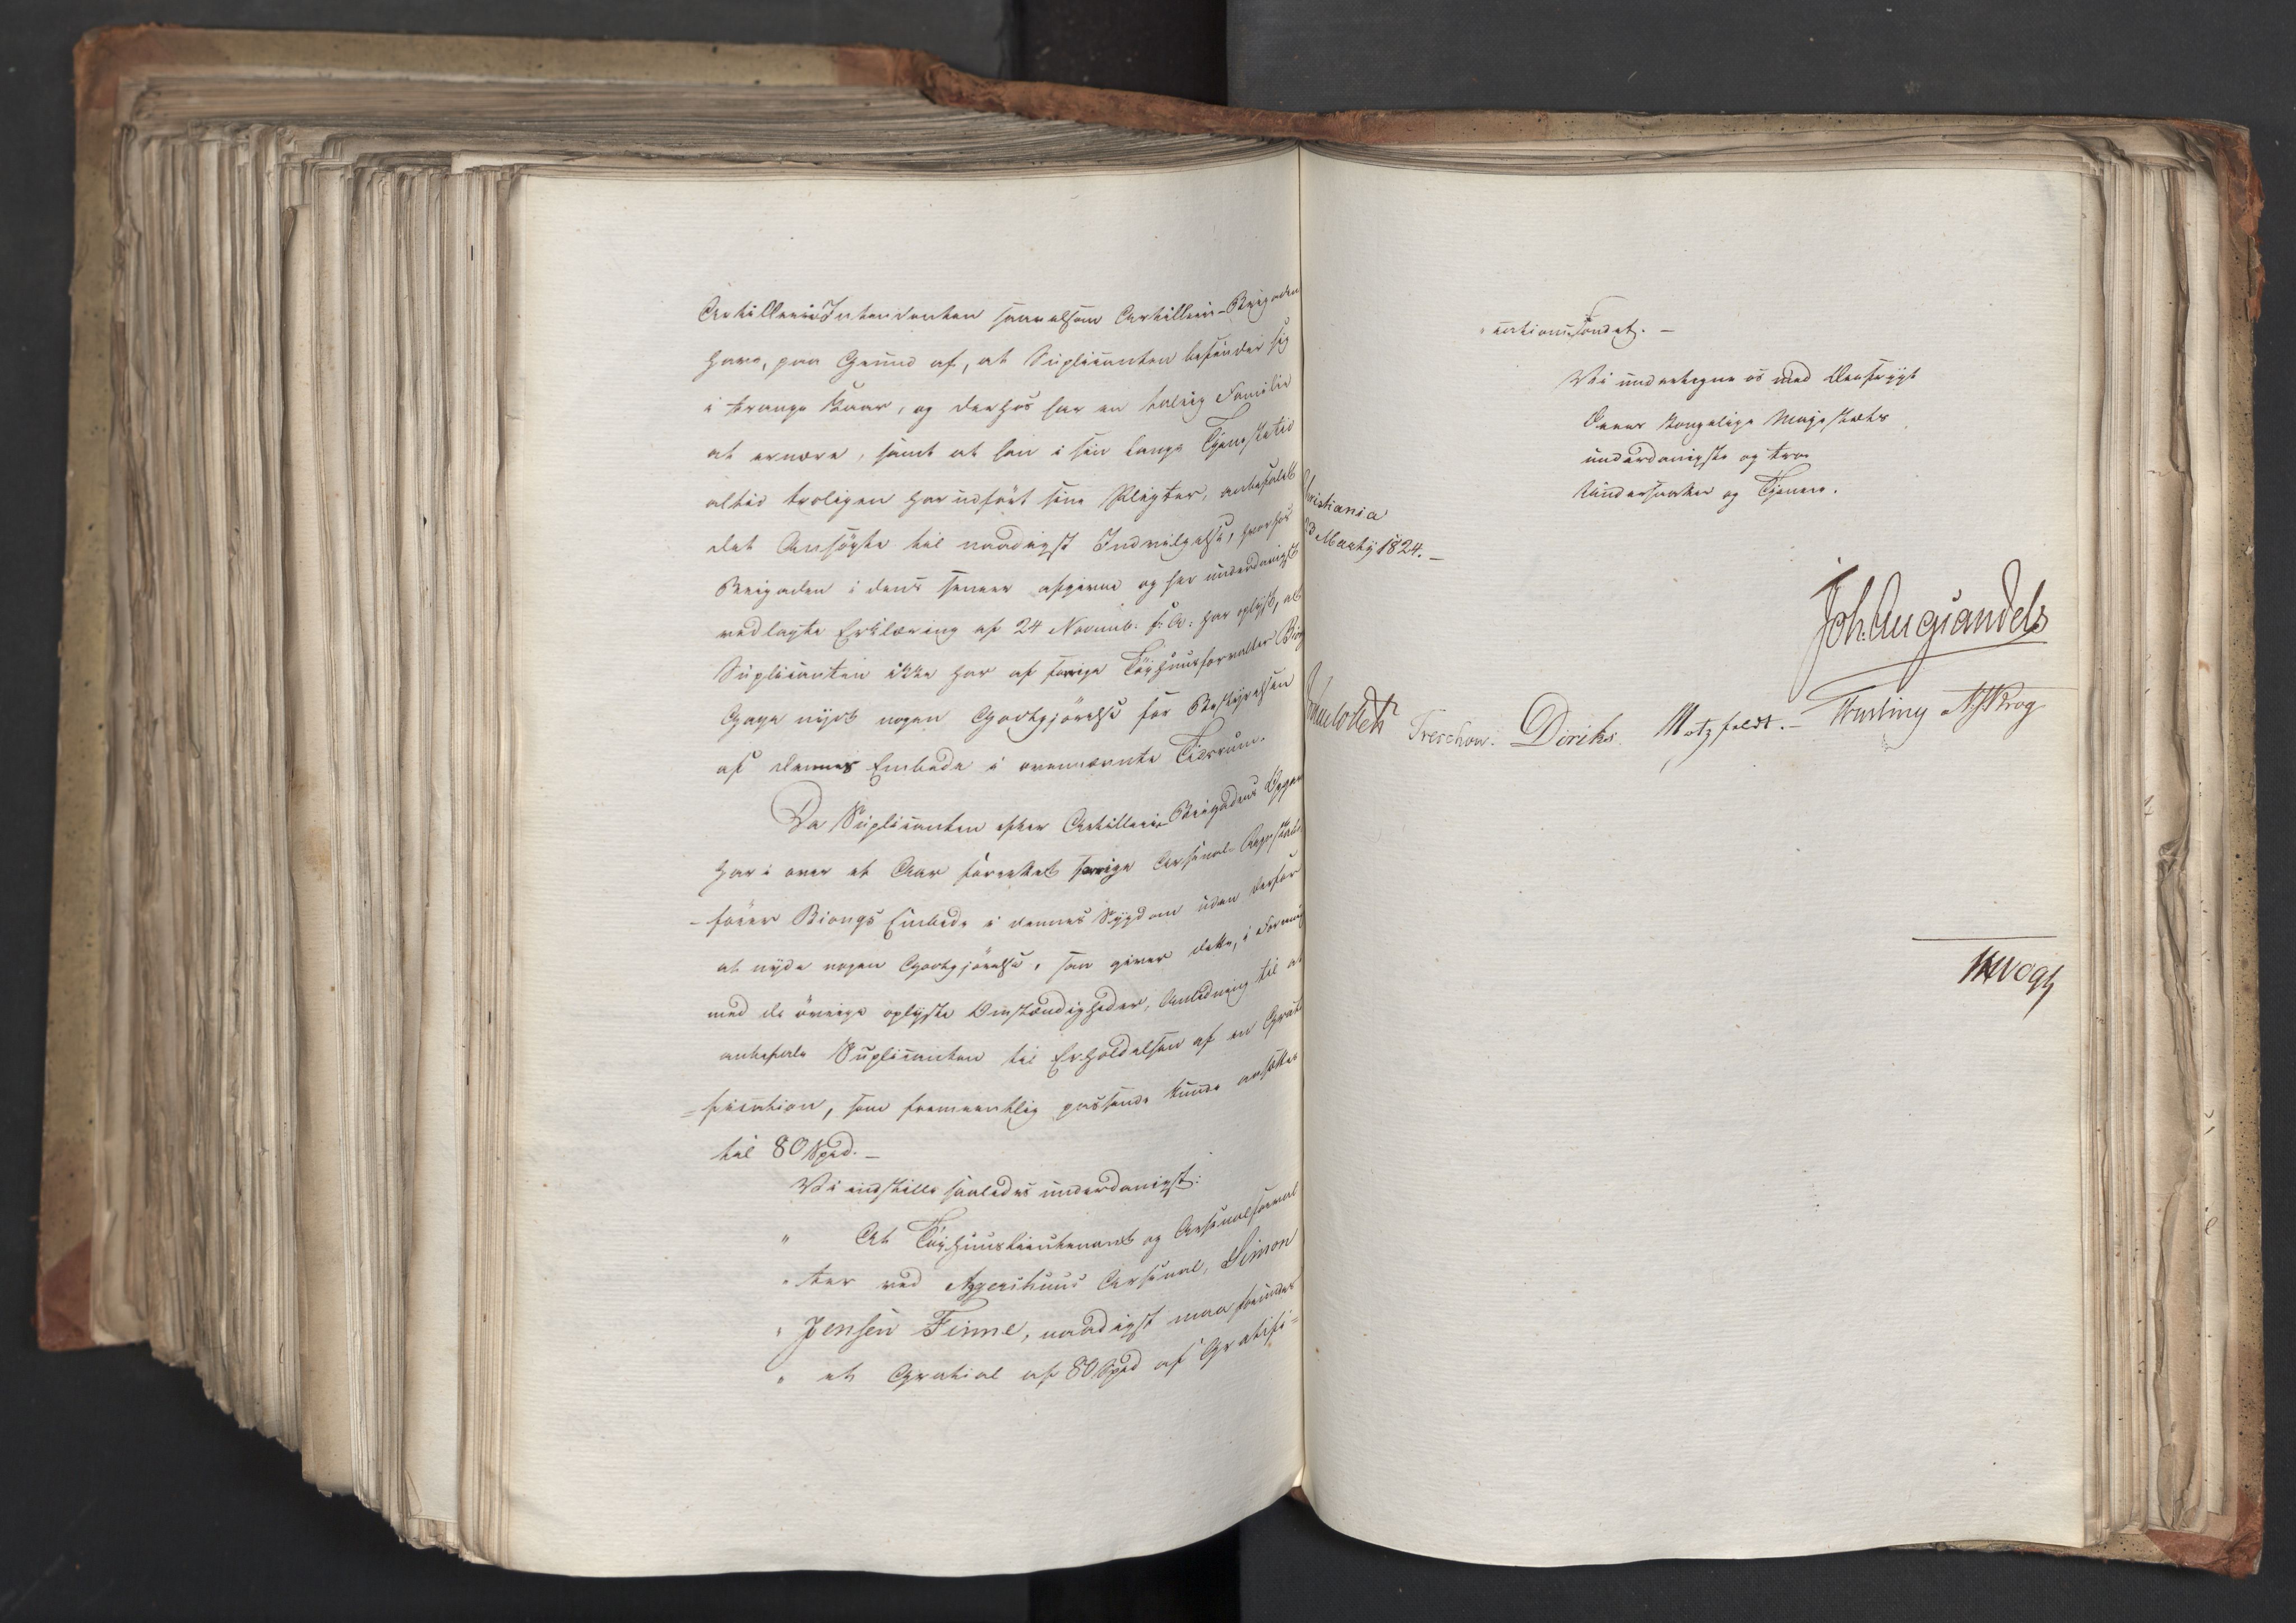 Artillerie Intendanten saavelsom Artillerie-Brigaden
have, paa Grund af, at Supplicanten befinder sig
i trange Kaar, og derhos har en talrig Familie
at ernære, samt at han i sin lange Tjenestetid
altid troligen har udført sine Pligter, anbefalet
det Ansøgte til naadigst Indvilgelse, hvorhos
Brigaden i dens senere afgivne og her underdanigst
vedlagte Erklæring af 24 Novemb: f: A: har oplyst, at
Suplicanten ikke har af forrige Tøihuusforvalter Biong
Gage nydt nogen Godtgjørelse for Bestyrelsen
af dennes Embede i ovennævnte Tidsrum.
Da Suplicanten efter Artillerie Brigadens Opgave
har i over et Aar forrettet forrige Arsenal-Regnskabs
-fører Biongs Embede i dennes Sygdom uden derfor
at nyde nogen Godtgjørelse, saa giver dette, i Forening
med de øvrige oplyste Omstændigheder, Anledning til at
anbefale Suplicanten til Erholdelsen af en Grati
=fication, som formeentlig passende kunde ansættes
til 80 Spd. —
Vi indstille saaledes underdanigst:
" At Tøihuuslieutenant og Arsenalforval
" ter ved Aggershuus Arsenal, Simon
" Jensen Finne, naadigst maa forundes
" et Gratial af 80 Spd af Gratifi=
" cationsfondet. —
Vi undertegne os med Dybfrygt
Deres Kongelige Majestæts
underdanigste og troe
Undersaatter og Tjenere.
Christiania
Martij 1824. —
Joh. Aug Sandels
Treschow. Diriks. Motzfeldt. — Krog
Vogt